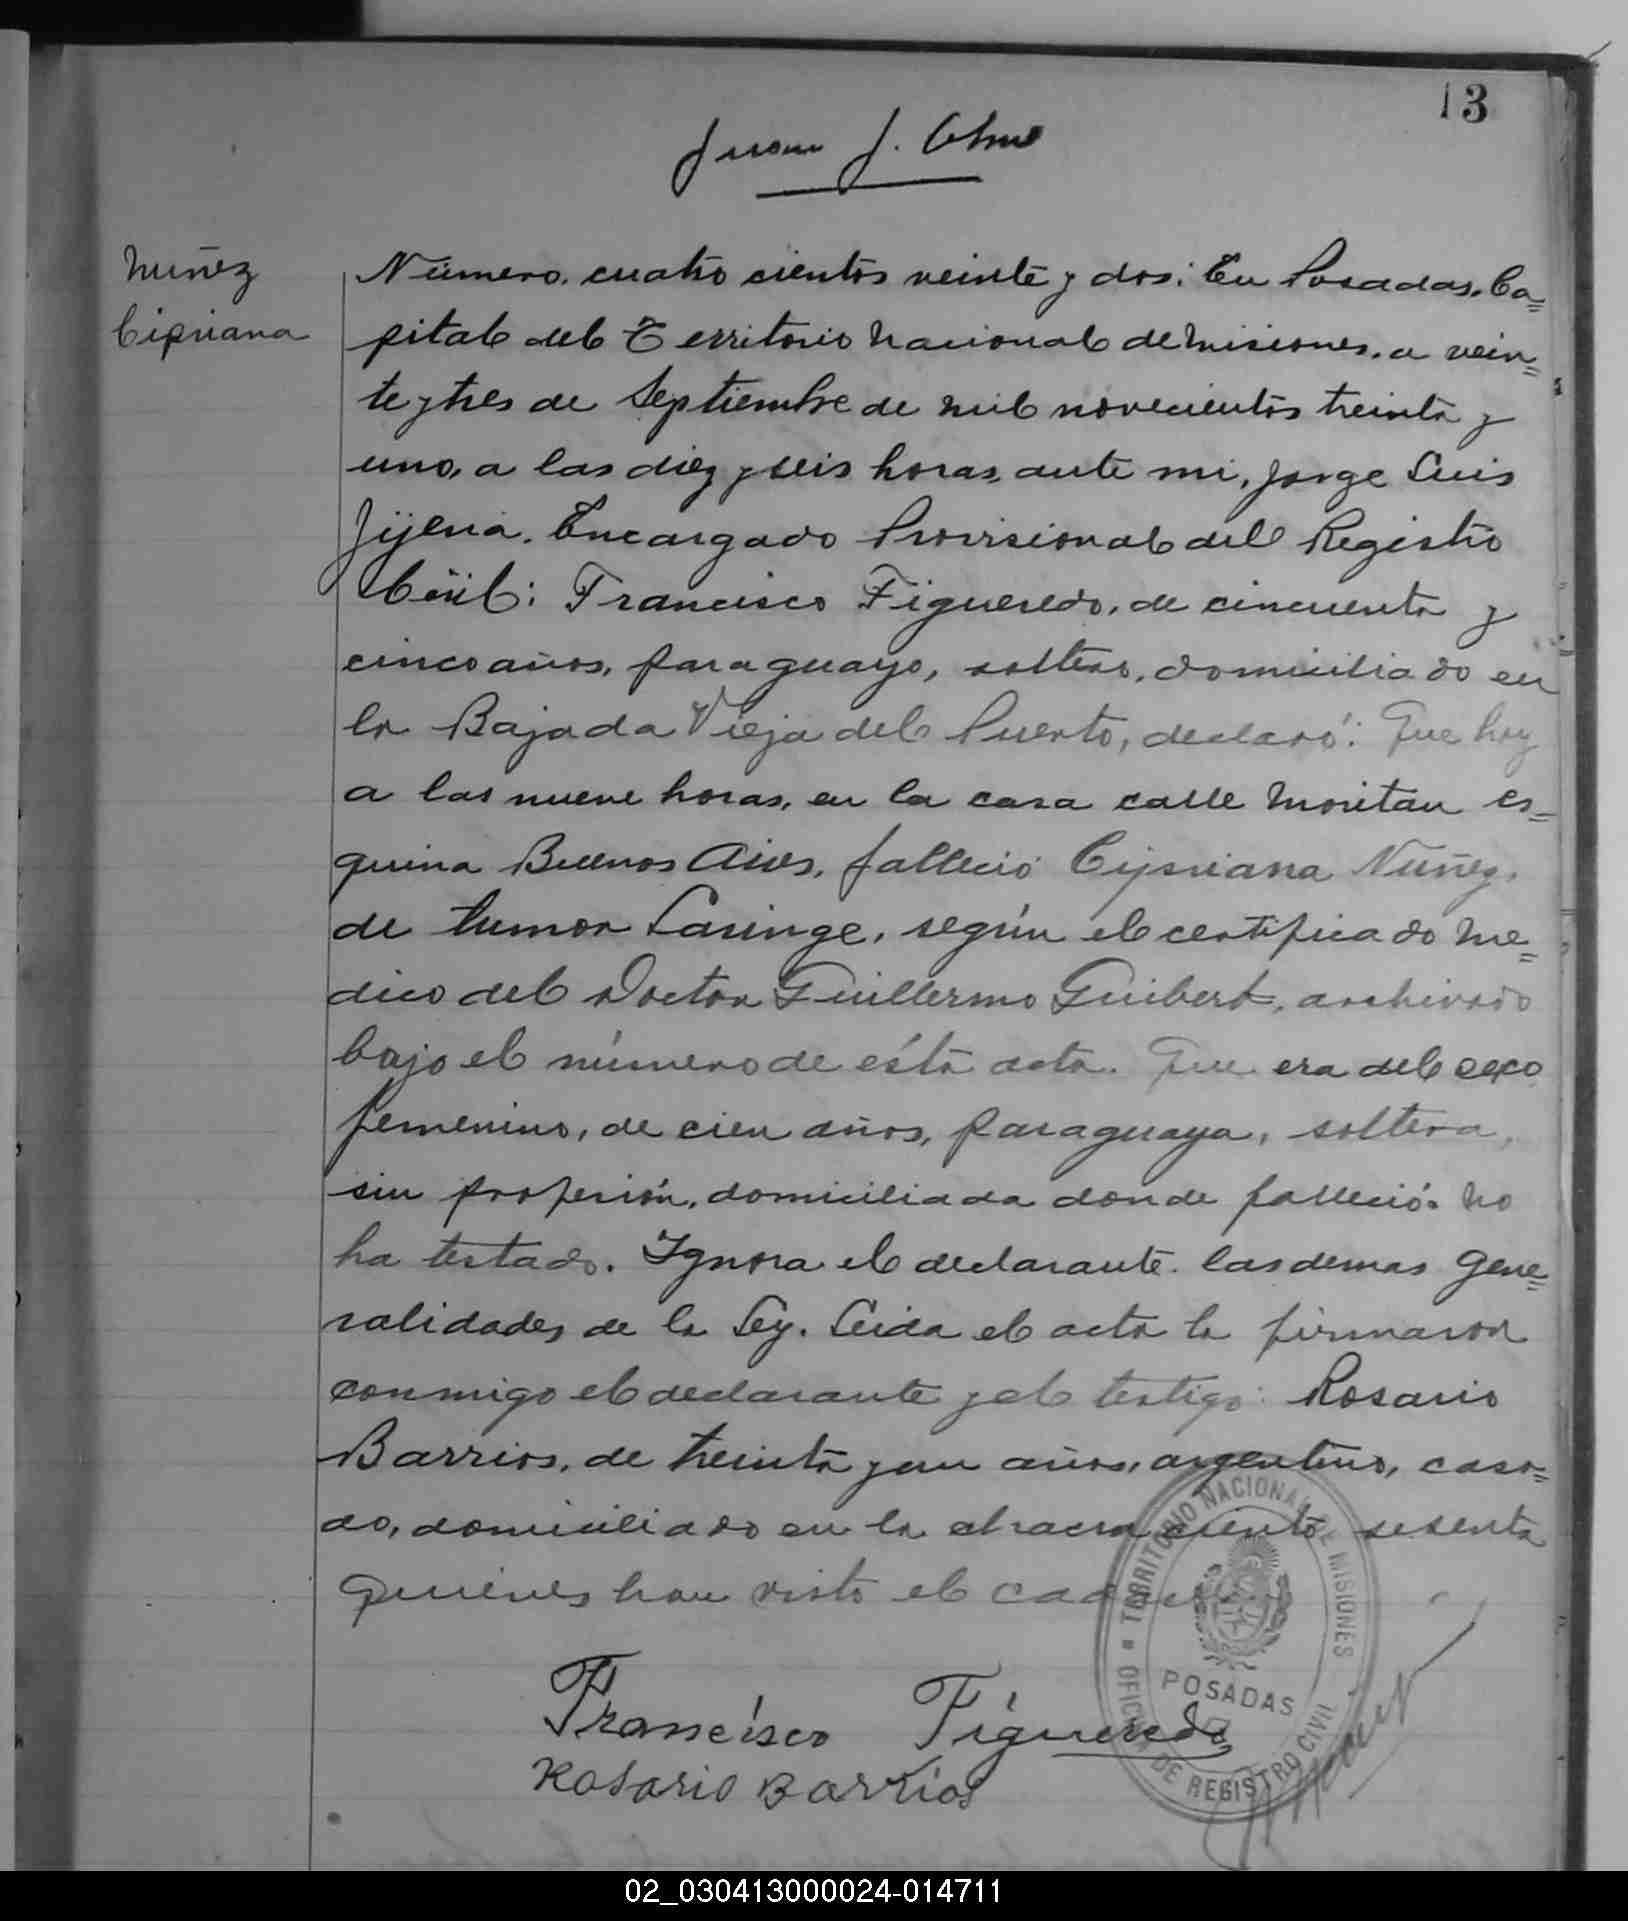 13
Juan J.
Nuñez
Cipriana
Número. cuatro cientos veinte y dos: En Posadas, Ca=
pital del Territorio Nacional de Misiones, a vein=
te y tres de Septiembre de mil novecientos treinta y
uno, a las diez y seis horas, ante mi, Jorge Luis
Jijena, Encargado Provisional del Registro
Civil: Francisco Figueredo, de cincuenta y
cinco años, paraguayo, soltero, domiciliado en
la Bajada Vieja del Puerto, declaró: Que hoy
a las nueve horas, en la casa calle Moritan es=
quina Buenos Aires, falleció Cipriana Nuñez,
de tumor Laringe, según el certificado mé=
dico del Doctor Guillermo Guibert, archivado
bajo el número de ésta acta. Que era del sexo
femenino, de cien años, paraguaya, soltera,
sin profesión, domiciliada donde falleció. No
ha testado. Ignora el declarante las demas gene=
ralidades de la Ley. Leida el acta la firmaron
conmigo el declarante y el testigo: Rosario
Barrios, de treinta y un años, argentino, casa=
do, domiciliado en la chacra ciento sesenta
quienes han visto el cadaver
Francisco Figueredo
Rosario Barrios
TERRITORIO NACIONAL DE MISIONES
POSADAS
OFICINA DE REGISTRO CIVIL
02_030413000024-014711